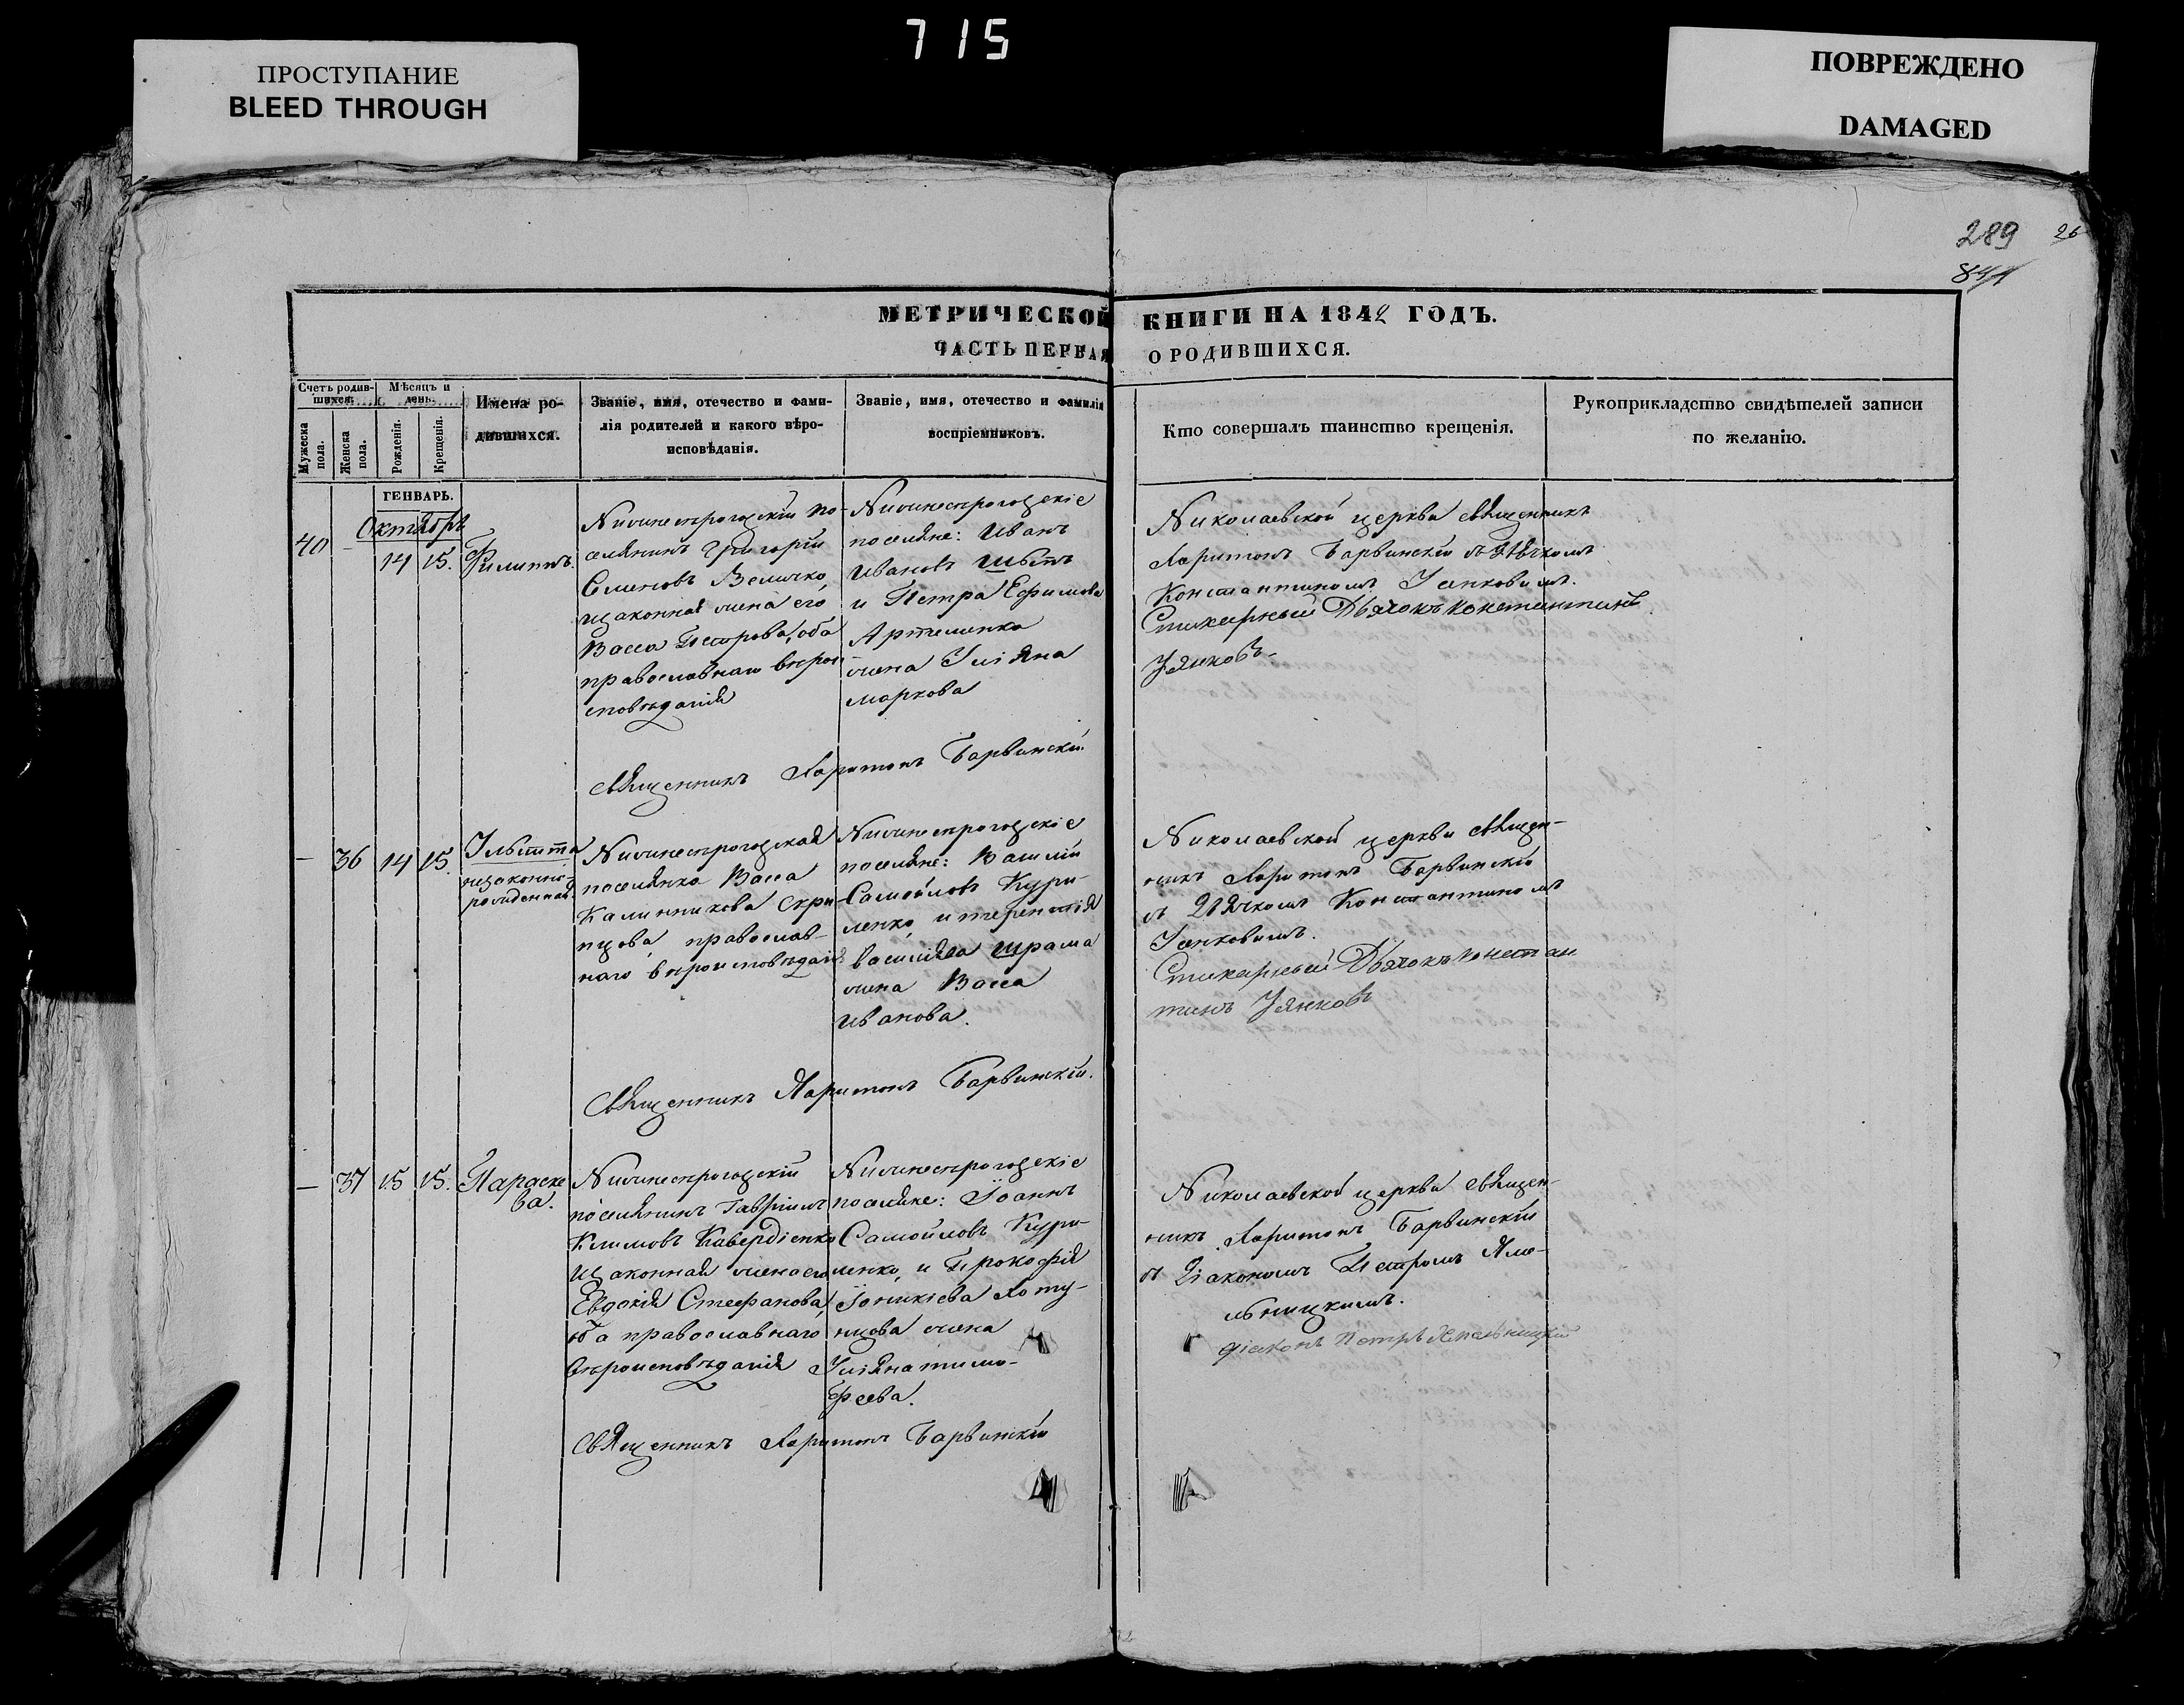 715
ПРОСТУПАНИЕ
BLEED THROUGH
ПОВРЕЖДЕНО
DAMAGED
289 26
841
МЕТРИЧЕСКОЙ КНИГИ НА 1842 ГОДЪ.
ЧАСТЬ ПЕРВАЯ О РОДИВШИХСЯ.
Счетъ родив-
шихся.
Мужеска
пола.
Женска
пола.
Мѣсяцъ и
день.
Рожденія.
Крещенія.
Имена ро-
дившихся.
Званіе, имя, отечество и фами-
лія родителей и какого вѣро-
исповѣданія.
Званіе, имя, отечество и фамилія
воспріемниковъ.
Кто совершалъ таинство крещенія.
Рукоприкладство свидѣтелей записи
по желанію.
ГЕНВАРЬ.
Октябрь
40 – 14 15. Филиппъ.
Нижнесѣрогозскій по-
селянинъ Григорій
Семеновъ Величко,
изаконная жена его
Васса Петрова, оба
православнаго вѣрои
сповѣданія
Нижнесѣрогозскіе
поселяне: Иванъ
Ивановъ Швѣтъ
и Петра Ефимова
Артеменка
жена Уліяна
Маркова
Николаевской церкви священникъ
Харитонъ Барвинскій съ дьячкомъ
Константиномъ Усенковымъ.
Стихарный Дьячокъ Константинъ
Священникъ Харитонъ Барвинскій
– 36 14 15.
незаконно-
рожденная
Нижнесѣрогозская
поселянка Васса
Калинникова Скри-
пцова, православ-
наго вѣроисповѣданія
Нижнесѣрогозскіе
поселяне: Василій
Самойловъ Кури-
ленко, и терентія
василіева Шрама
жена Васса
Иванова.
Николаевской церкви священ-
никъ Харитонъ Барвинскій
съ Дьячкомъ Константиномъ
Усенковымъ.
Стихарный Дьячокъ Констан
тинъ
Священникъ Харитонъ Барвинскій.
– 37 15 15. Параске
ва.
Нижнесѣрогозскій
поселянинъ Гавріилъ
Климовъ Кавердіенко
изаконная жена его
Евдокія Стефанова,
оба православнаго
вѣроисповѣданія
Нижнесѣрогозскіе
поселяне: Іоаннъ
Самойловъ Кури-
ленко, и Прокофія
Іоникіева Хоту-
нцова жена
Уліяна тимо-
феева.
Николаевской церкви священ-
никъ Харитонъ Барвинскій
съ Діакономъ Петромъ Хме-
льницкимъ.
діаконъ Петръ Хмельницкій
Священникъ Харитонъ Барвинскій